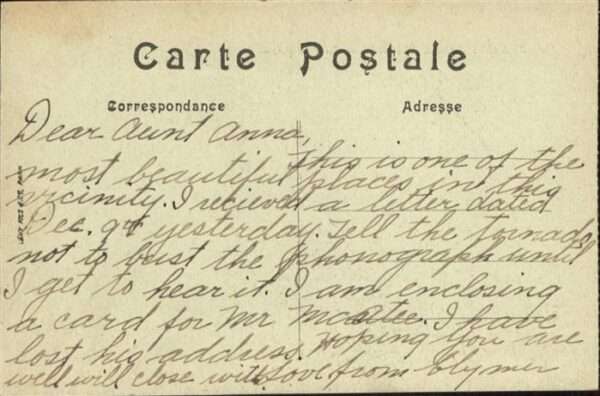 Carte Postale
Correspondance Adresse
Dear Aunt Anna,
This is one of the
most beautiful places in this
vicinity. I recieved a letter dated
Dec. 9th yesterday. Tell the Tornado
not to bust the phonograph until
I get to hear it. I am enclosing
a card for Mr McAtee. I have
lost his address. Hoping you are
well will close with love from Clymer